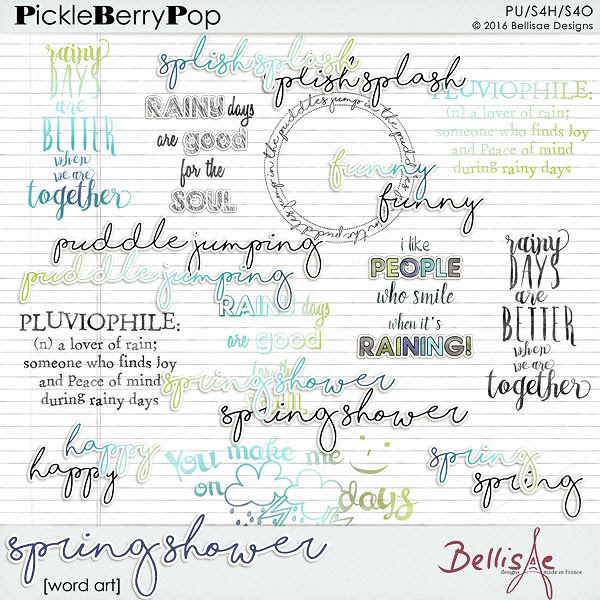 PickleBerryPop
PU/S4H/S4O
© 2016 Bellisae Designs
rainy
DAYS
are
BETTER
when
we are
together
splish splash
plish splash
RAINY days
are good
for the
SOUL
jump in the puddles jump in the puddles jump in the puddles
funny
funny
PLUVIOPHILE:
(n) a lover of rain;
someone who finds Joy
and Peace of mind
during rainy days
puddle jumping
puddle jumping
i like
PEOPLE
who smile
when it's
RAINING!
rainy
DAYS
are
BETTER
when
we are
together
RAINY days
are good
for the
SOUL
PLUVIOPHILE:
(n) a lover of rain;
someone who finds Joy
and Peace of mind
during rainy days
spring shower
spring shower
happy
happy
You make me
on
days
spring
spring
spring shower
[word art]
BellisAe
designs
made in France